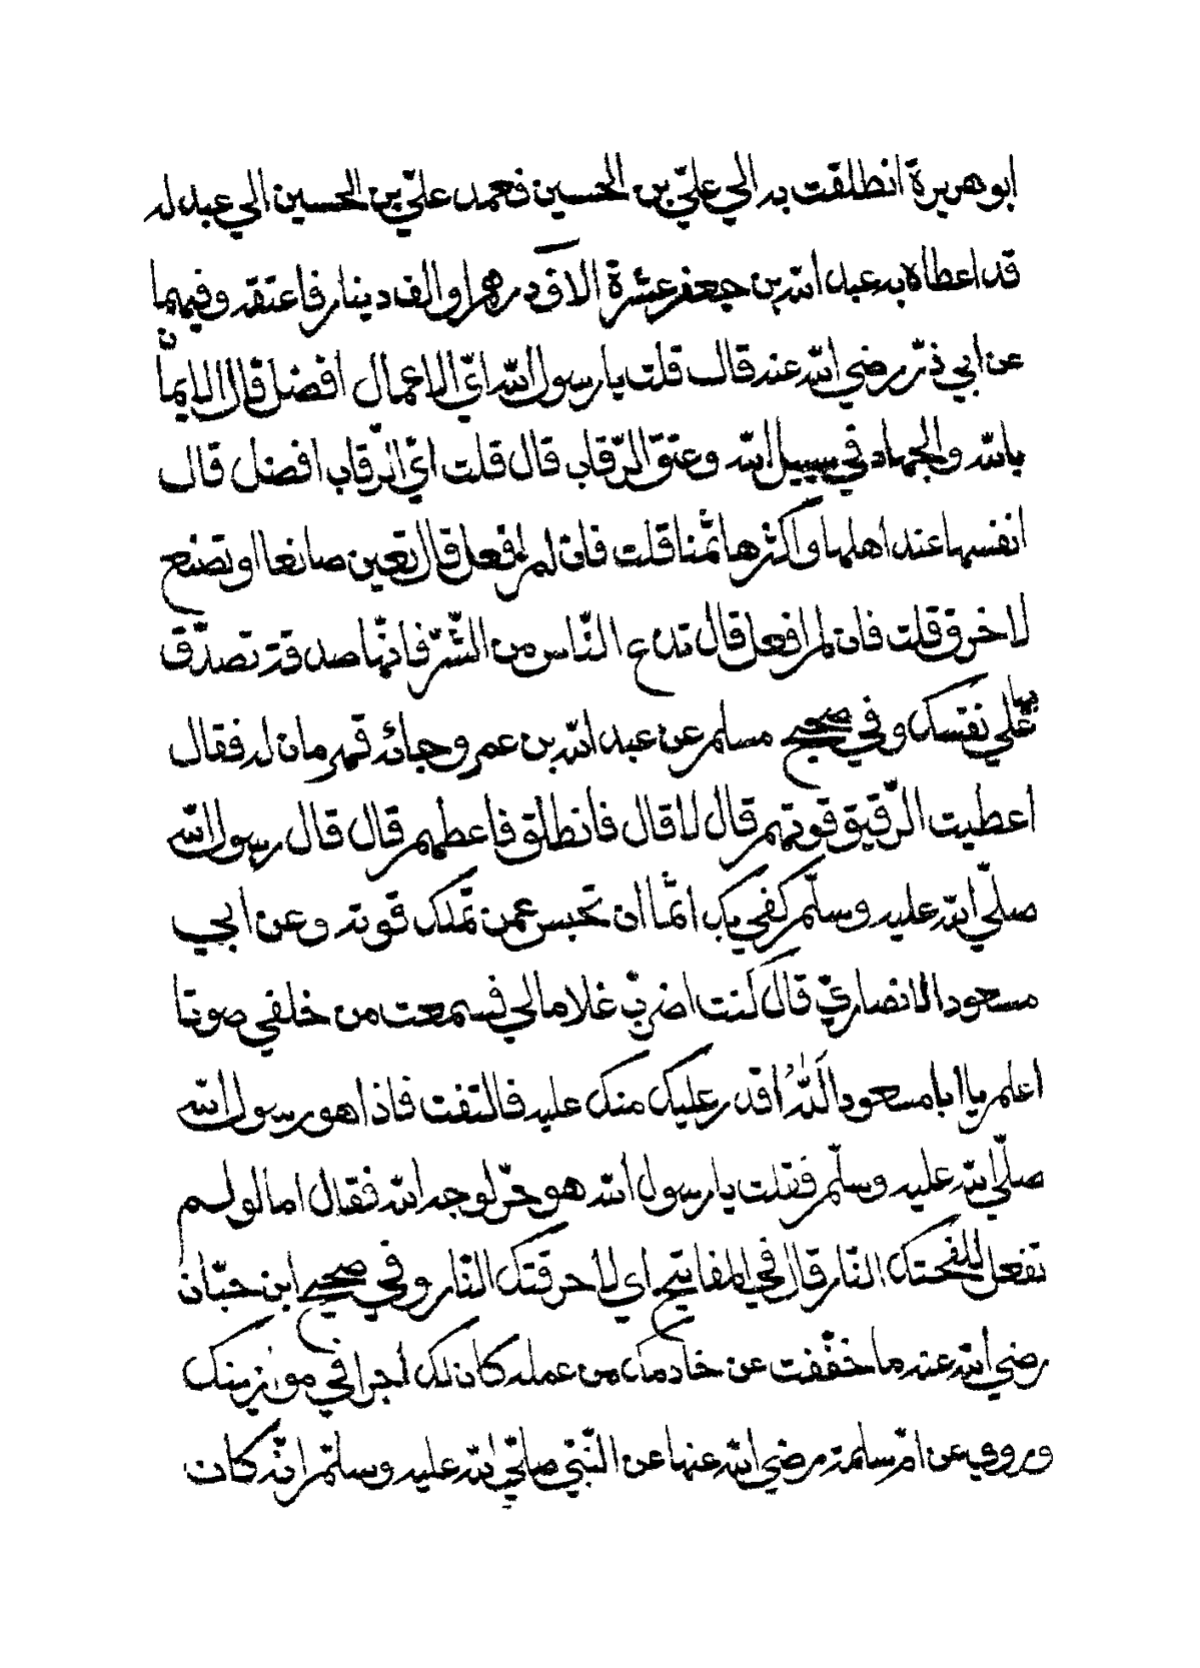 ابو هريرة انطلقت به الي عليّ بن الحسين فعمد عليّ بن الحسين الي عبد له
قد اعطاه به عبد الله بن جعفر عشرة الاف درهم او الف دينار فاعتقه وفيهما
عن ابي ذرّ رضي الله عنه قال قلت يا رسول الله ايّ الاعمال افضل قال الايمان
بالله والجهاد في سبيل الله وعتق الرّقاب قال قلت ايّ الرّقاب افضل قال
انفسها عند اهلها واكثرها ثمنا قلت فان لم افعل قال تعين صانعا او تصنع
لاخرق قلت فان لم افعل قال تدع النّاس من الشّرّ فانّها صدقة تصدّق
بها علي نفسك وفي صحيح مسلم عن عبد الله بن عمر وجائه قهرمان له فقال
اعطيت الرّقيق قوتهم قال لا قال فانطلق فاعطهم قال قال رسول الله
صلّي الله عليه وسلّم كفي بك اثما ان تحبس عمن تملك قوته وعن ابي
مسعود الانصاريّ قال كنت اضرب غلاما لي فسمعت من خلفي صوتا
اعلم يا ابا مسعود اَللّٰهُ اقدر عليك منك عليه فالتفت فاذا هو رسول الله
صلّي الله عليه وسلّم فقلت يا رسول الله هو حرّ لوجه الله فقال اما لو لم
تفعل للفحتك النّار قال في المفاتيح اي لاحرقتك النّار وفي صحيح ابن حبّان
رضي الله عنه ما خفّفت عن خادمك من عمله كان لك اجرا في موازينك
وروي عن امّ سلمة رضي الله عنها عن النّبيّ صلّي الله عليه وسلّم انّه كان